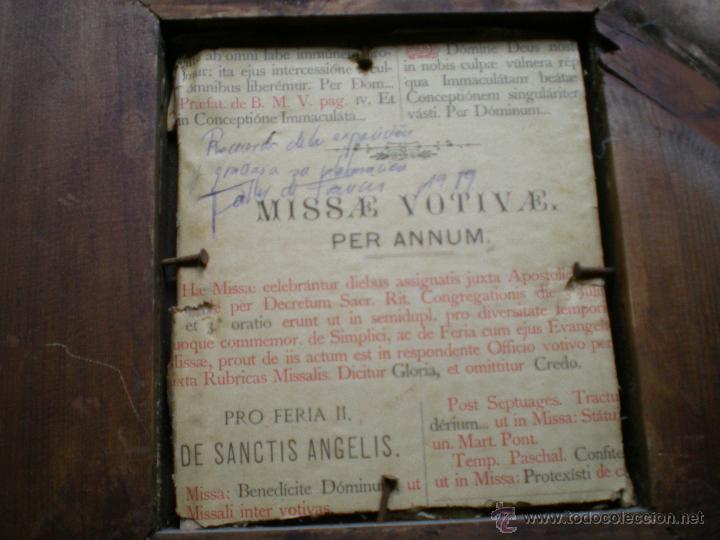 ab omni labe
ita ejus intercessióne
omnibus liberémur. Per Dom...
Præfat. de B. M. V. pag. IV. Et
in Conceptióne Immaculáta...
Dómine Deus
in nobis culpæ vúlnera
qua Immaculátam beátæ
Conceptiónem singuláriter
vásti. Per Dóminum...
de la
gracias a
Taller de 1919
MISSÆ VOTIVÆ.
PER ANNUM.
Hæ Missæ celebrántur diebus assignatis juxta
per Decretum Sacr. Rit. Congregationis die
et 3. oratio erunt ut in semidupl. pro diversitate
commemor. de Simplici, ac de Feria cum ejus
prout de iis actum est in respondente Officio votivo per
Rubricas Missalis. Dicitur Gloria, et omittitur Credo.
PRO FERIA II.
DE SANCTIS ANGELIS.
Missa: Benedícite Dóminum ut
Missali inter votivas.
Post Septuages.
dérium... ut in Missa:
un. Mart. Pont.
Temp. Paschal.
ut in Missa: Protexísti de
www.todocoleccion.net